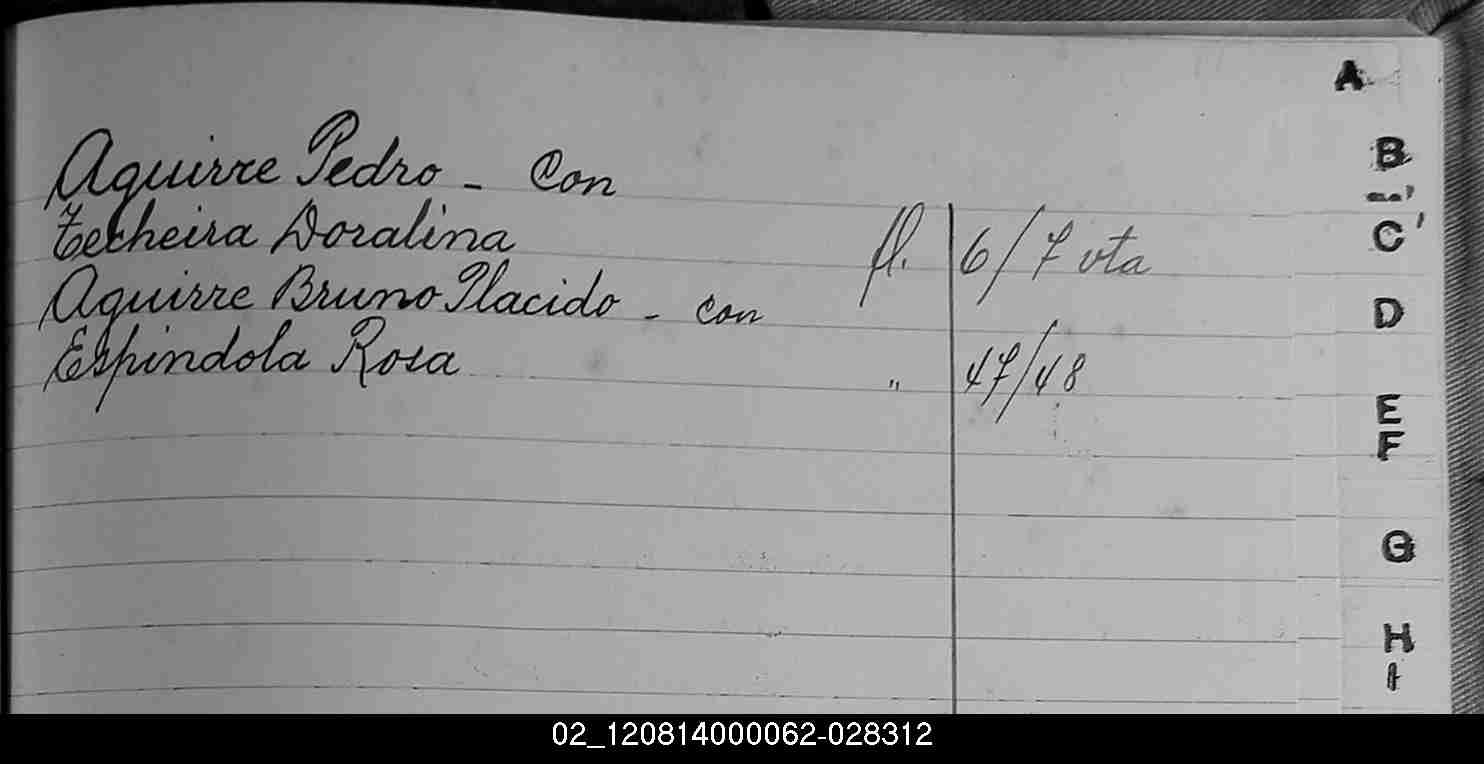 A
Aguirre Pedro - Con
Techeira Doralina fl. 6/7 vta
Aguirre Bruno Placido - con
Espindola Rosa " 47/48
B
C
D
E
F
G
H
I
02_120814000062-028312